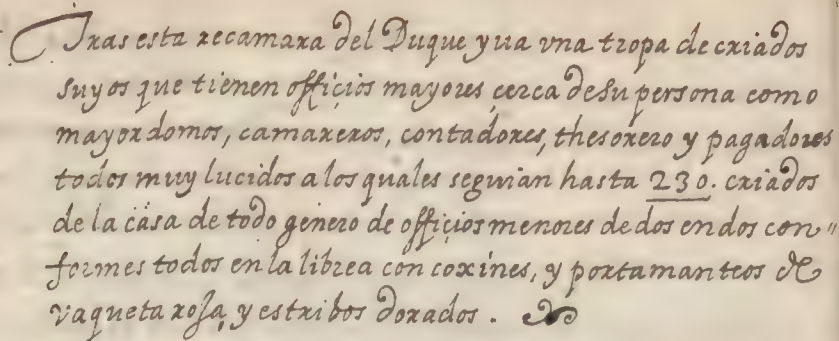 Tras esta recamara del Duque yua vna tropa de criados
suyos que tienen officios mayores cerca de su persona como
mayordomos, camareros, contadores, thesorero y pagadores
todos muy lucidos a los quales seguian hasta 230. criados
de la casa de todo genero de officios menores de dos en dos con"
formes todos en la librea con coxines, y portamanteos de
vaqueta roja, y estribos dorados.